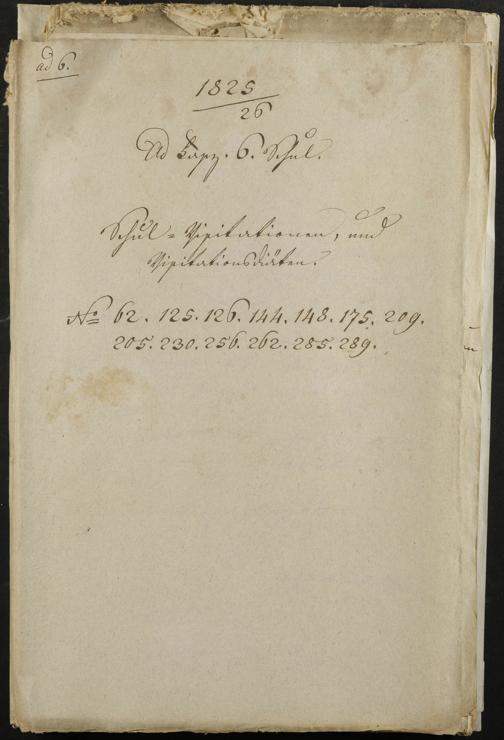 ad 6.
1825
26
Ad Kapz. 6. Schul.
Schul = Visitationen, und
Visitationsdiäten.
No 62. 125. 126. 144. 148. 175. 209.
205. 230. 256. 262. 285. 289.